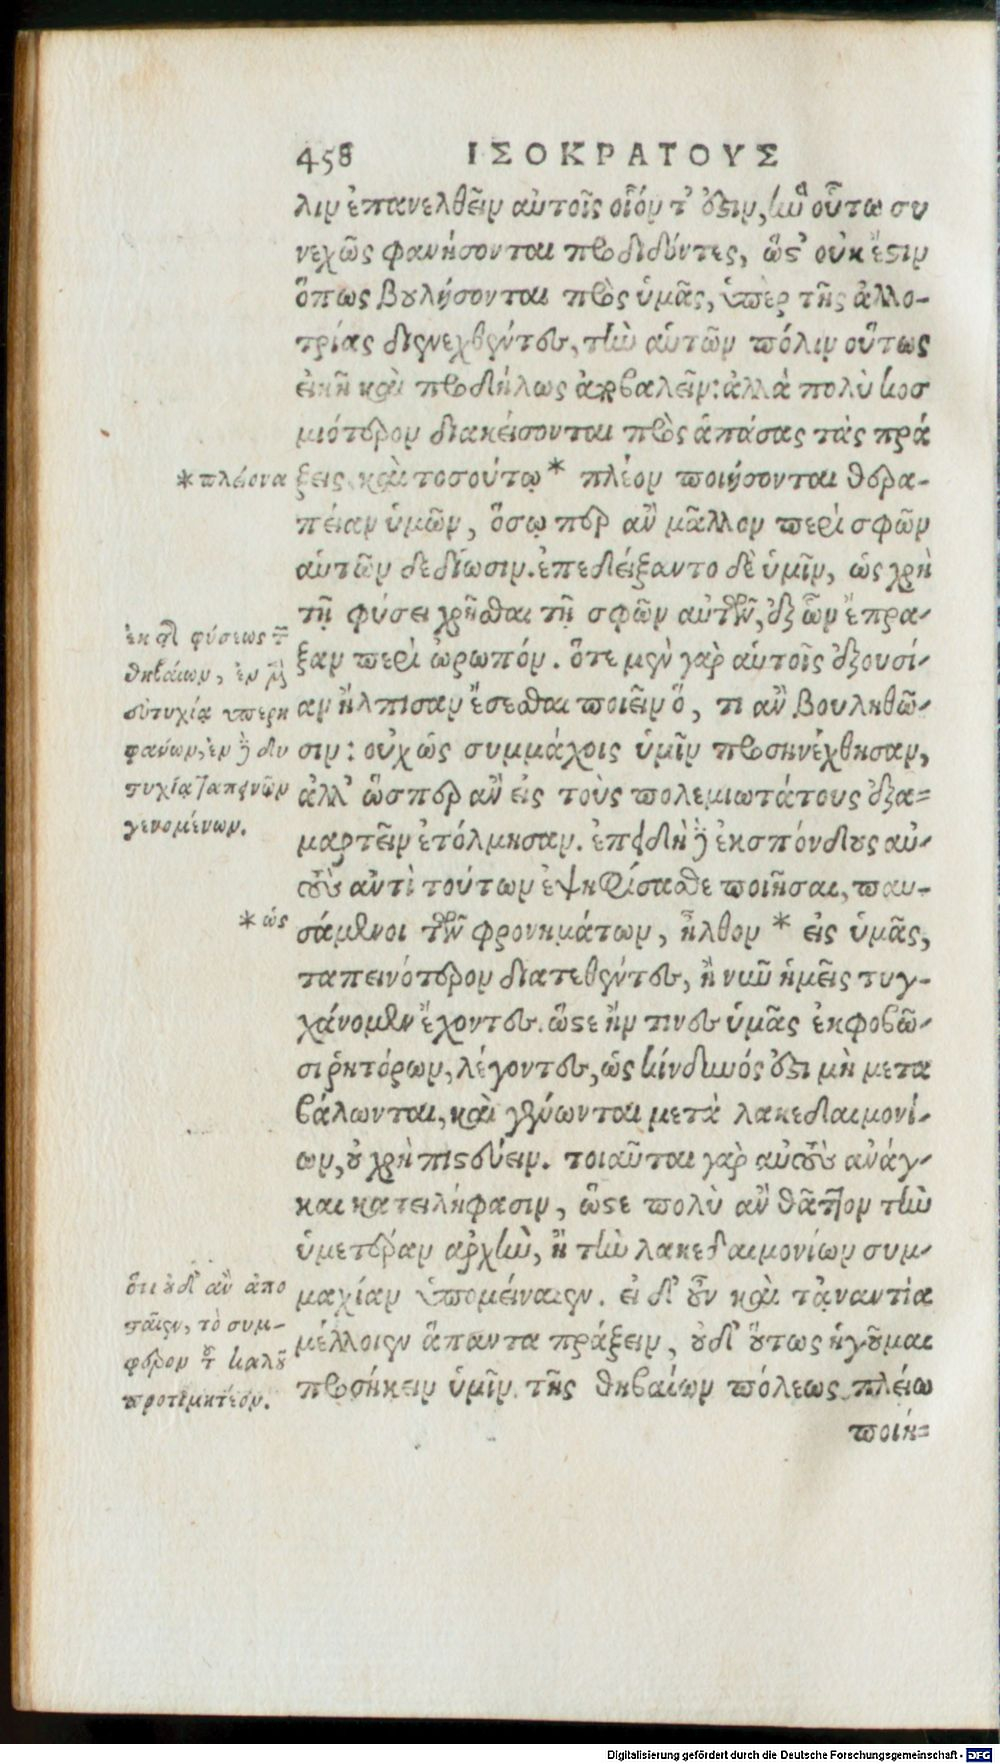 458 ΙΣΟΚΡΑΤΟΥΣ
λιν ἐπανελθεῖν αὐτοῖς οἷόν τ' ἐστιν, ἢν οὕτω συ
νεχῶς φανήσονται προδιδόντες, ὥστ' οὐκ ἔστιν
ὅπως βουλήσονται πρὸς ὑμᾶς, ὑπὲρ τῆς ἀλλο-
τρίας διενεχθέντες, τὴν αὑτῶν πόλιν οὕτως
εἰκῆ καὶ προδήλως ἐκβαλεῖν: ἀλλὰ πολὺ κοσ
μιότερον διακείσονται πρὸς ἁπάσας τὰς πρά
*πλείονα ξεις καὶ τοσούτῳ * πλέον ποιήσονται θερα-
πείαν ὑμῶν, ὅσῳ περ ἂν μᾶλλον περὶ σφῶν
αὑτῶν δεδίωσιν. ἐπεδείξαντο δὲ ὑμῖν, ὡς χρὴ
τῇ φύσει χρῆσθαι τῇ σφῶν αὐτῶν, ἐξ ὧν ἔπρα-
ξαν περὶ ὠρωπόν. ὅτε μὲν γὰρ αὑτοῖς ἐξουσί-
αν ἤλπισαν ἔσεσθαι ποιεῖν ὅ, τι ἂν βουληθῶ-
σιν: οὐχ ὡς συμμάχοις ὑμῖν προσηνέχθησαν,
ἀλλ' ὥσπερ ἂν εἰς τοὺς πολεμιωτάτους ἐξα=
μαρτεῖν ἐτόλμησαν. ἐπειδὴ δὲ ἐκσπόνδους αὐ-
τοὺς ἀντὶ τούτων ἐψηφίσασθε ποιῆσαι, παυ-
σάμενοι τῶν φρονημάτων, ἦλθον * εἰς ὑμᾶς,
ταπεινότερον διατεθέντες, ἢ νῦν ἡμεῖς τυγ-
χάνομεν ἔχοντες. ὥστε ἤν τινες ὑμᾶς ἐκφοβῶ-
σι ῥητόρων, λέγοντες, ὡς κίνδυνός ἐστι μὴ μετα
βάλωνται, καὶ γένωνται μετὰ λακεδαιμονί-
ων, οὐ χρὴ πιστεύειν. τοιαῦται γὰρ αὐτοὺς ἀνάγ-
και κατειλήφασιν, ὥστε πολὺ ἂν θᾶττον τὴν
ὑμετέραν ἀρχὴν, ἢ τὴν λακεδαιμονίων συμ-
μαχίαν ὑπομείναιεν. εἰ δ' οὖν καὶ τἀναντία
μέλλοιεν ἅπαντα πράξειν, οὐδ' οὕτως ἡγοῦμαι
προσήκειν ὑμῖν τῆς θηβαίων πόλεως πλείω
ποιή=
ἐκ τῆς φύσεως τῶν
θηβαίων, ἐν μὲν
εὐτυχίᾳ ὑπερη
φάνων, ἐν δὲ δυ
στυχίᾳ ταπεινῶν
γενομένων.
* ὡς
ὅτι οὐδ' ἂν ἀπο
σταῖεν, τὸ συμ-
φέρον τοῦ καλοῦ
προτιμητέον.
Digitalisierung gefördert durch die Deutsche Forschungsgemeinschaft - DFG